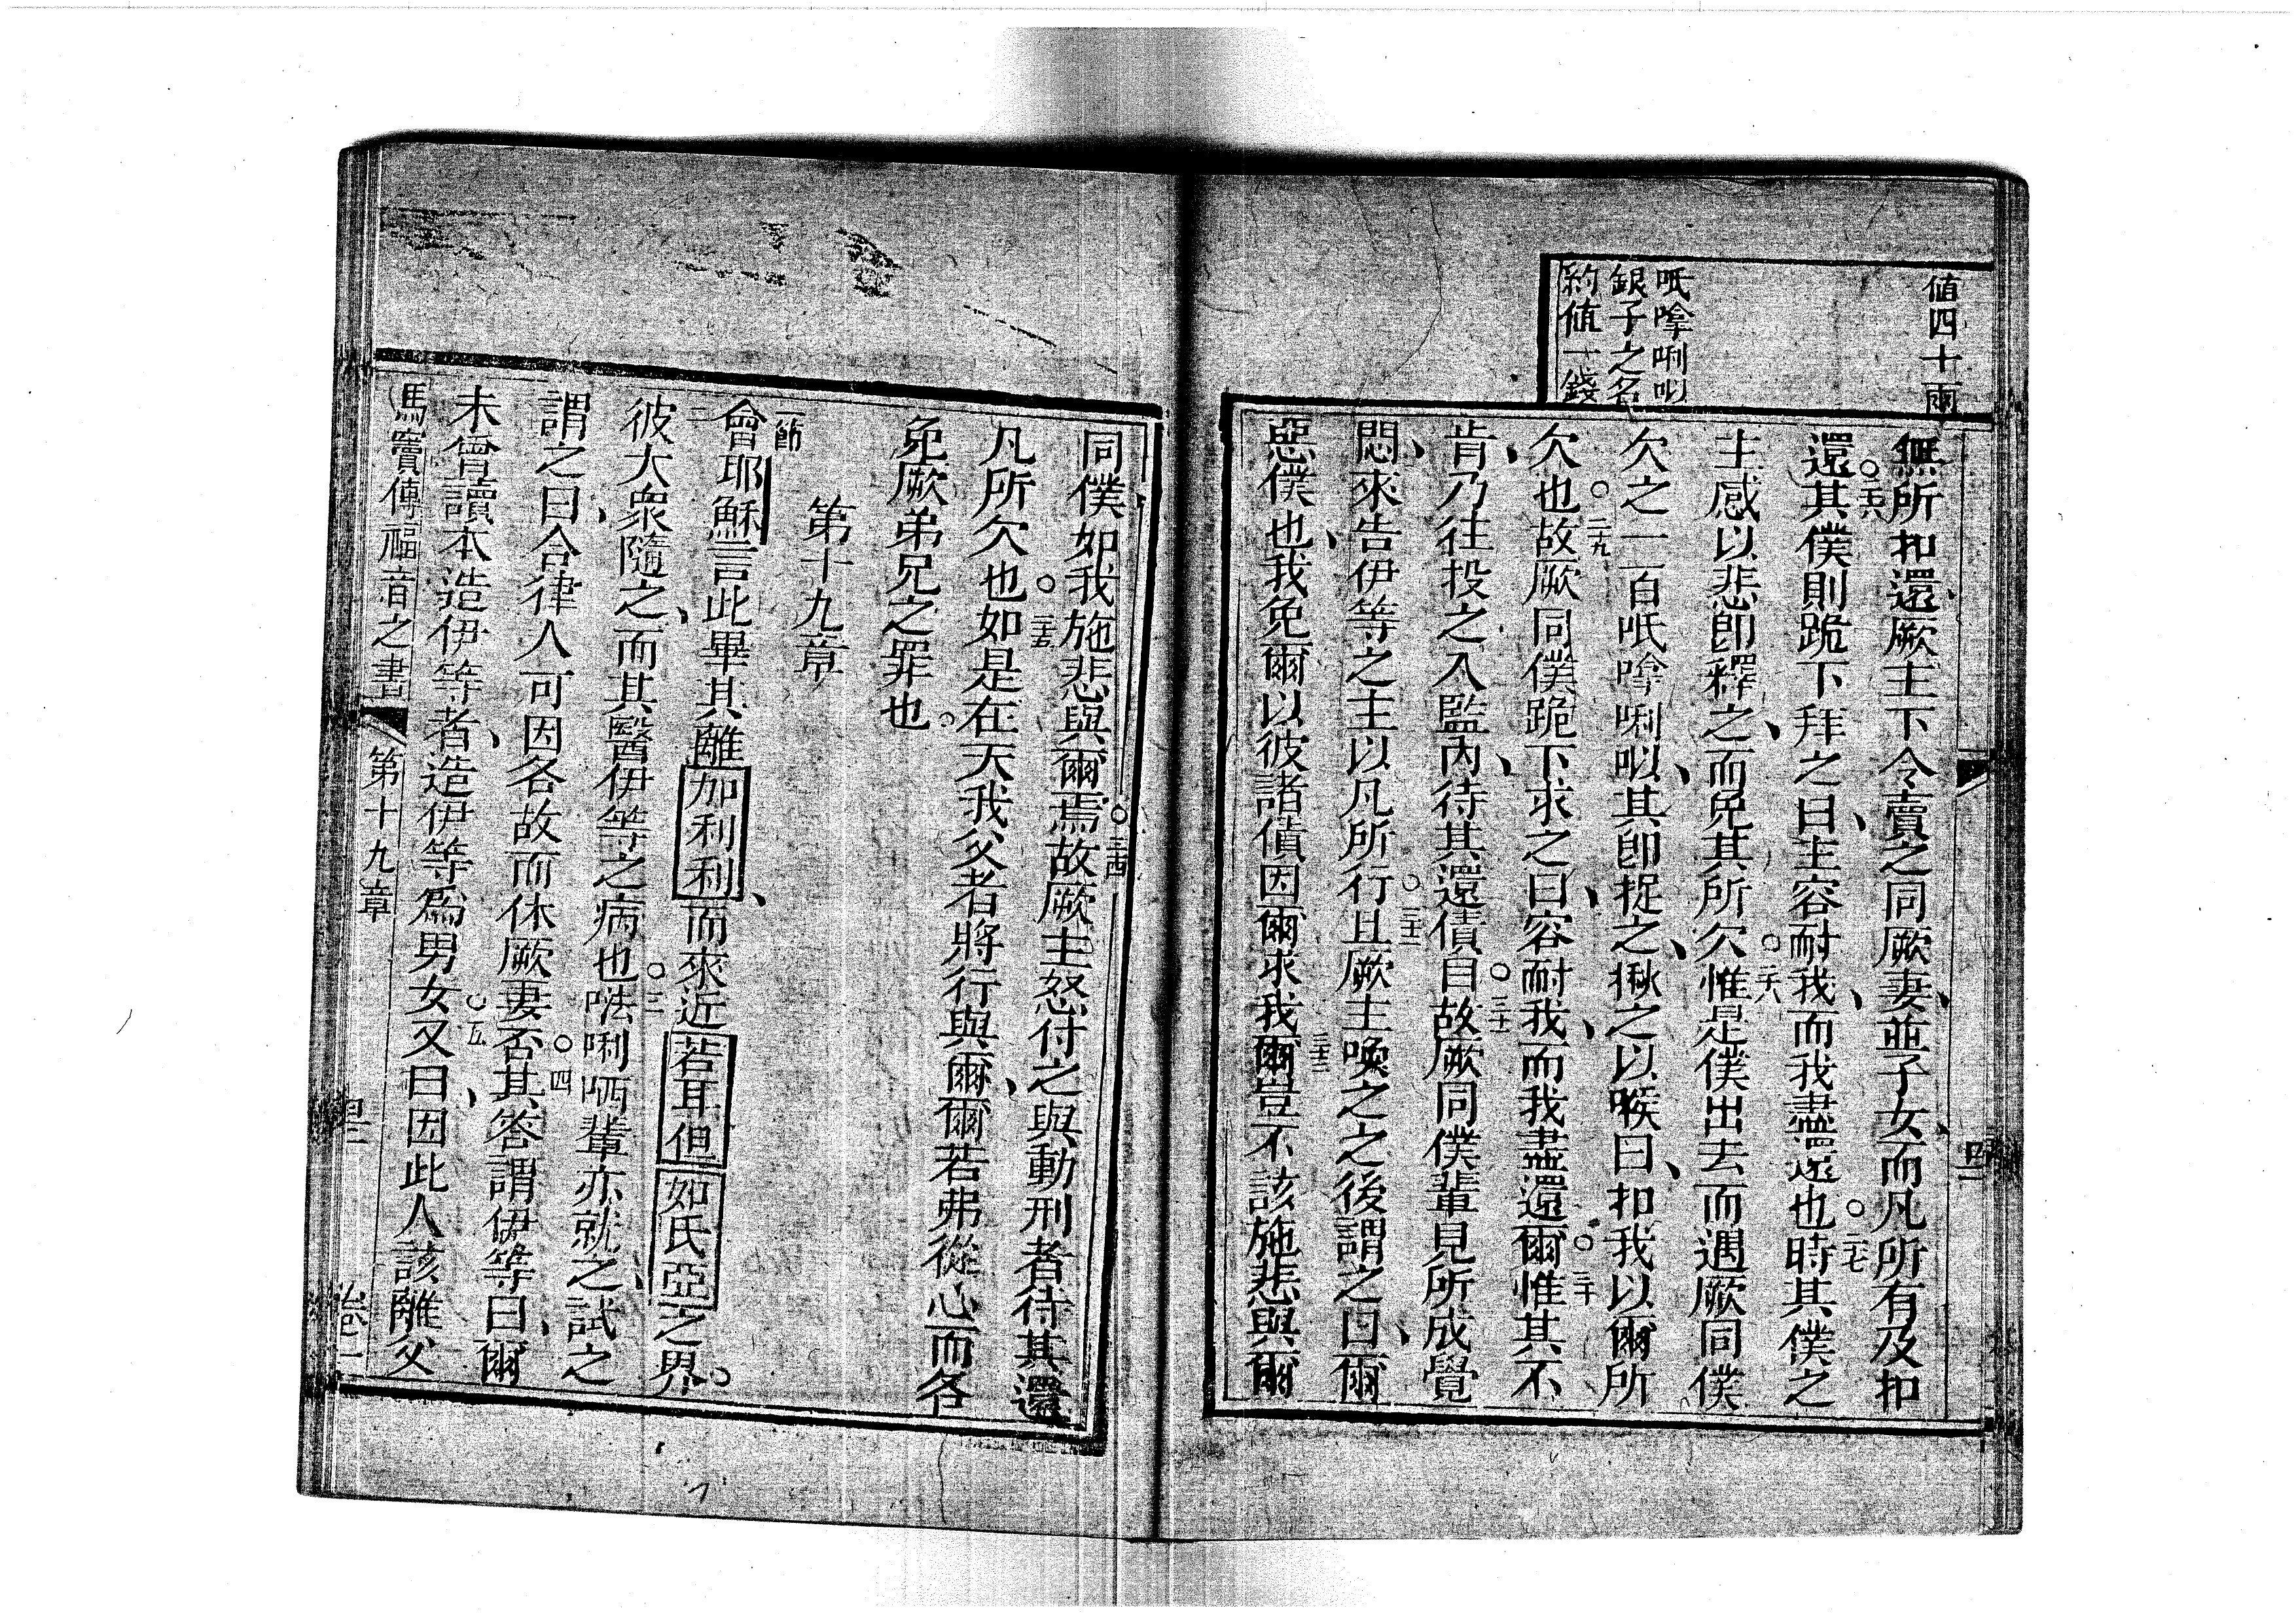 值四十兩
呧唥唎呭
銀子之名
約值一錢
無所扣還厥主下令賣之同厥妻並子女而凡所有及扣
還○二六其僕則跪下拜之曰主容耐我而我盡還也○二七時其僕之
主感以悲卽釋之而免其所欠○二八惟是僕出去而遇厥同僕
欠之一百呧唥唎呭其卽捉之揪之以喉曰扣我以爾所
欠也○二九故厥同僕跪下求之曰容耐我而我盡還爾○三十惟其不
肯乃往投之入監內待其還債自○三一故厥同僕輩見所成覺
悶來告伊等之主以凡所行○三二且厥主喚之之後謂之曰爾
惡僕也我免爾以彼諸債因爾求我三三爾豈不該施悲與爾
同僕如我施悲與爾焉○三四故厥主怒付之與動刑者待其還
凡所欠也○三五如是在天我父者將行與爾爾若弗從心而各
免厥弟兄之罪也
第十九章
一節會耶穌言此畢其離加利利而來近若耳但如氏亞之界
二彼大衆隨之而其醫伊等之病也○三𠵽唎哂輩亦就之試之
謂之曰合律人可因各故而休厥妻否○四其答謂伊等曰爾
未曾讀本造伊等者造伊等爲男女○五又曰因此人該離父
馬竇傳福音之書 第十九章 卷一